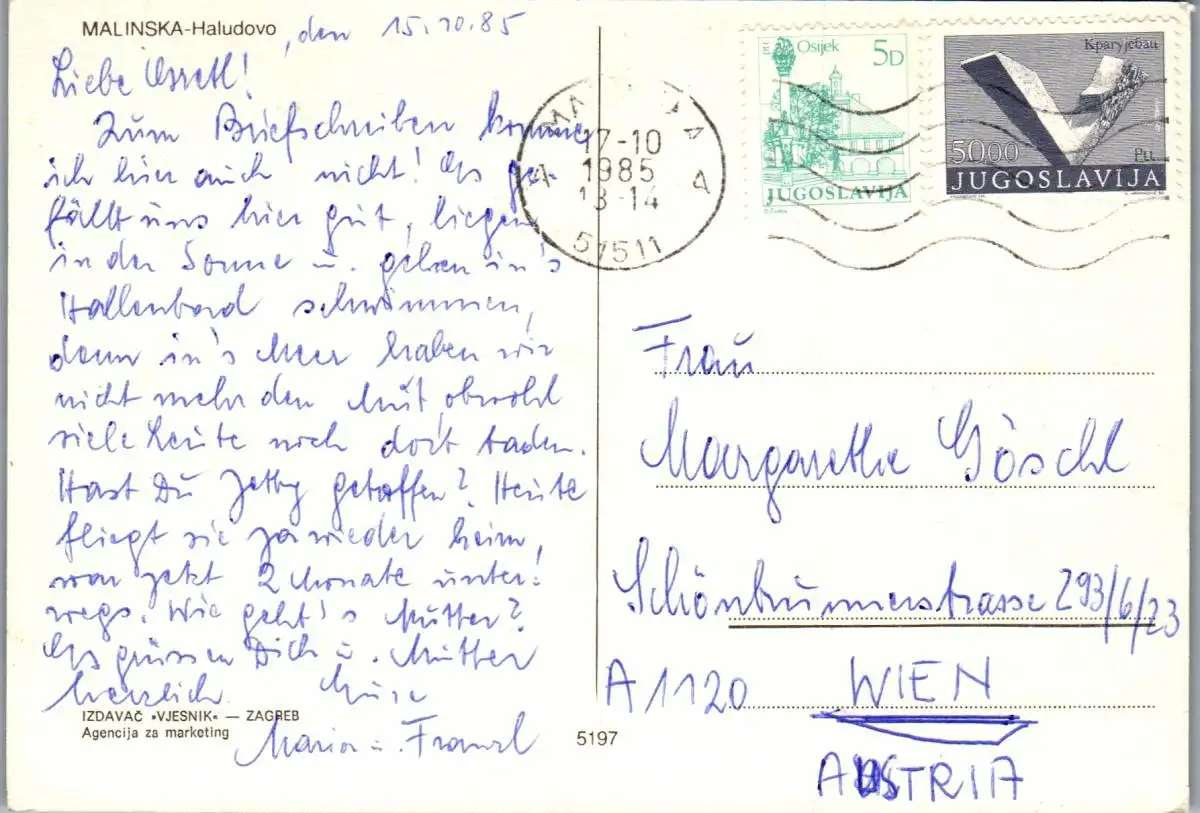 MALINSKA-Haludovo
, den 15.10.85
Liebe
Zum Briefschreiben komme
ich hier auch nicht! Es ge-
fällt uns hier gut, liegen
in der Sonne u. gehen in's
Hallenbad schwimmen,
denn in's Meer haben wir
nicht mehr den Mut, obwohl
viele Leute noch dort baden.
Hast Du getroffen? Heute
fliegt sie ja wieder heim,
war jetzt 2 Monate unter-
wegs. Wie geht's Mutter?
Es grüssen Dich u. Mutter
herzlich
Maria u. Franzl
IZDAVAČ »VJESNIK« — ZAGREB
Agencija za marketing
5197
17-10
1985
13-14
51511
ptt
Osijek
5D
JUGOSLAVIJA
Крагујевац
5000
Ptt
JUGOSLAVIJA
Frau
Margarethe Göschl
Schönbrunnerstrasse 293/6/23
A 1120 WIEN
AUSTRIA